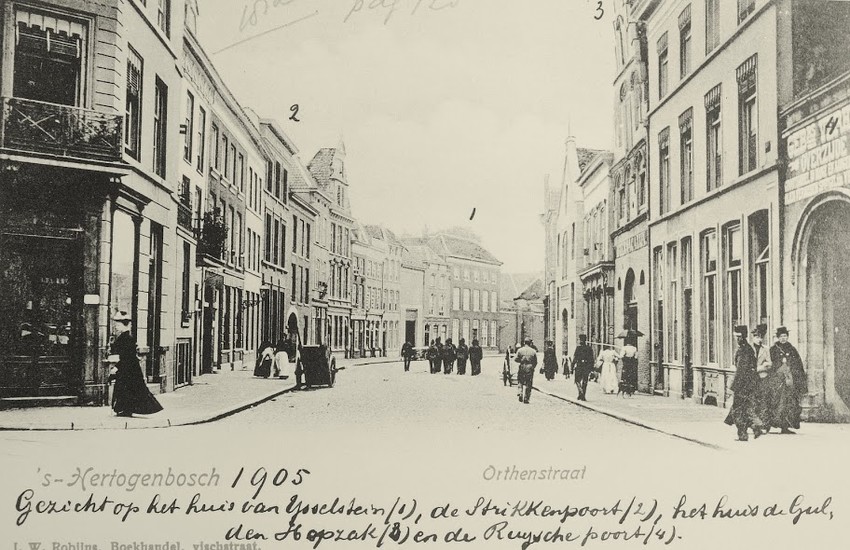 3
2
4
GEBR
's-Hertogenbosch 1905
Orthenstraat
Gezicht op het huis van Ysselstein (1), de Strikkenpoort (2), het huis de Gul,
den Hopzak (3) en de Ruysche poort (4).
J. W. Robijns, Boekhandel, vischstraat.